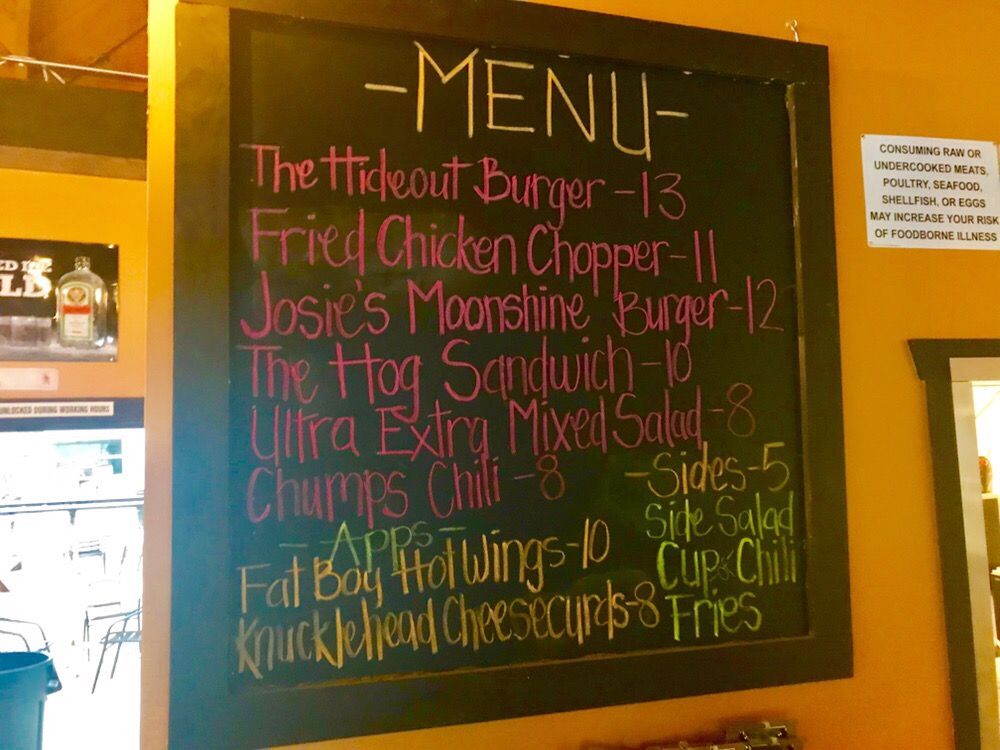 -MENU-
The Hideout Burger -13
Fried Chicken Chopper-11
Josie's Moonshine Burger-12
The Hog Sandwich -10
Ultra Extra Mixed Salad -8
Chumps Chili -8
-Apps-
Fat Boy Hot Wings -10
Knucklehead Cheesecurds-8
-Sides-5
Side Salad
Cup of Chili
Fries
CONSUMING RAW OR
UNDERCOOKED MEATS,
POULTRY, SEAFOOD,
SHELLFISH, OR EGGS
MAY INCREASE YOUR RISK
OF FOODBORNE ILLNESS
UNLOCKED DURING WORKING HOURS